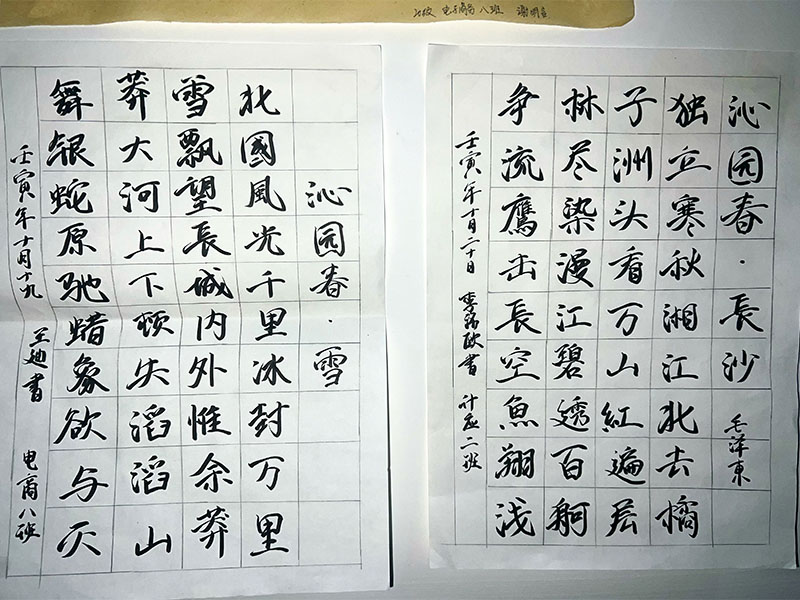 电子商务 八班
沁园春·長沙 毛泽東
独立寒秋湘江北去橘
子洲头看万山紅遍层
林尽染漫江碧透百舸
争流鹰击長空魚翔浅
壬寅年十月二十日 李 書 计应二班
沁园春·雪
北國風光千里冰封万里
雪飘望長城内外惟余莽
莽大河上下顿失滔滔山
舞银蛇原驰蜡象欲与天
壬寅年十月十九 王迪書 电商八班